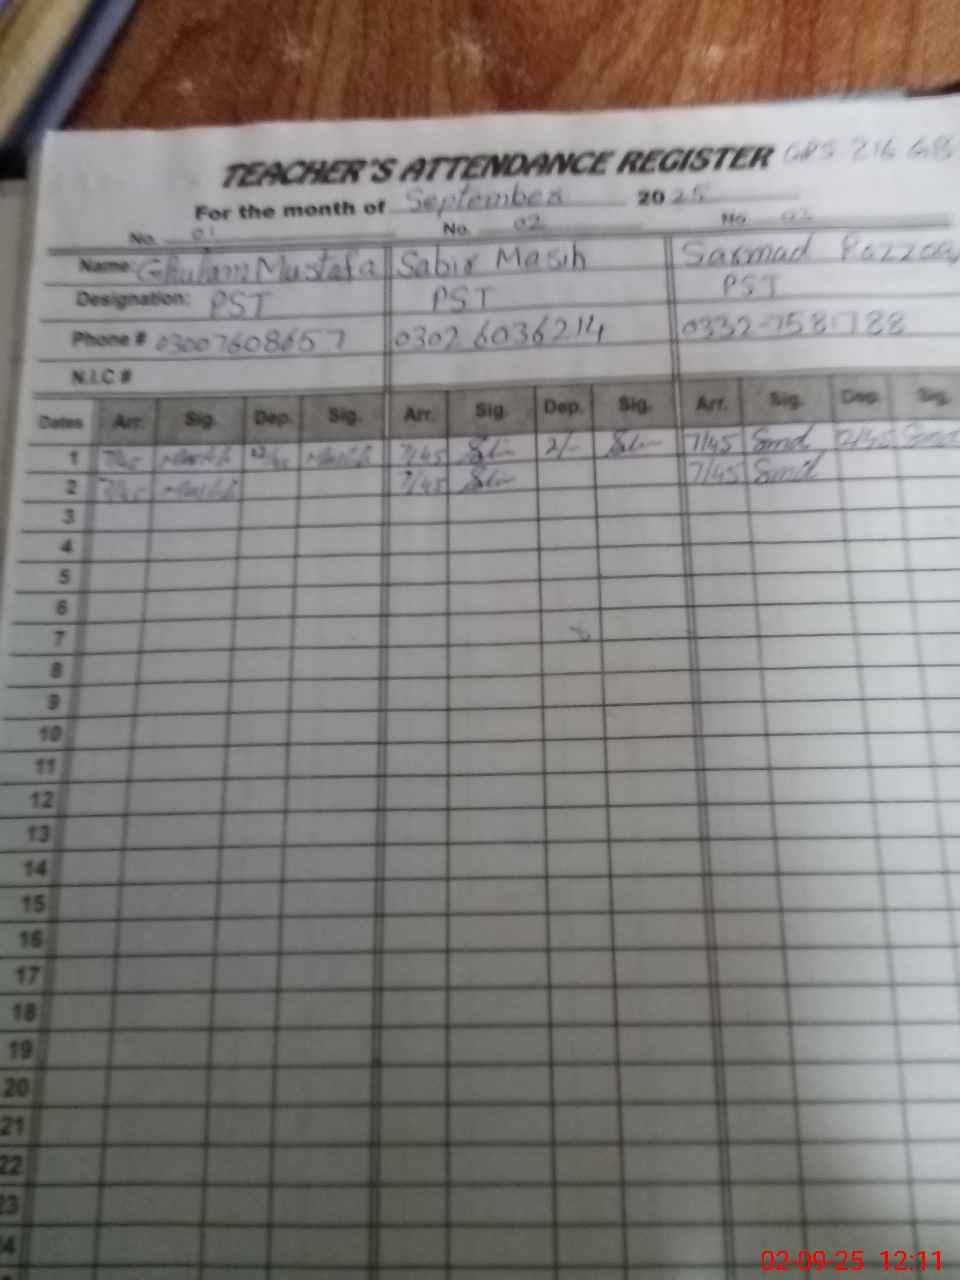 TEACHER'S ATTENDANCE REGISTER GPS 216 GB
For the month of September 2025
No. 01 No. 02 No.
Name: Ghulam Mustafa Sabir Masih Sarmad
Designation: PST PST PST
Phone # 03007608657 0302 6036214 0332-758-788
N.I.C #
Dates Arr. Sig. Dep. Sig. Arr. Sig. Dep. Sig. Arr. Sig. Dep. Sig.
1 7/45 7/45 2/- 7/45 Smd
2 7/45 7/45 7/45 Smd
3
4
5
6
7
8
9
10
11
12
13
14
15
16
17
18
19
20
21
22
23
02-09-25 12:11